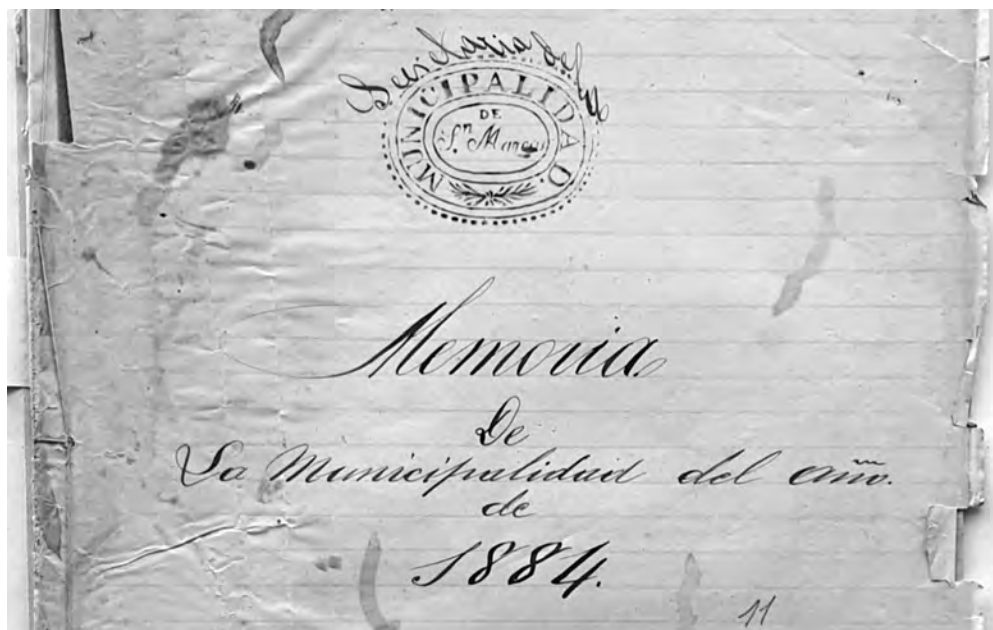 Secretaria de la
MUNICIPALIDAD
DE
S.n Marcos
Memoria
De
La Municipalidad del año.
de
1884.
11